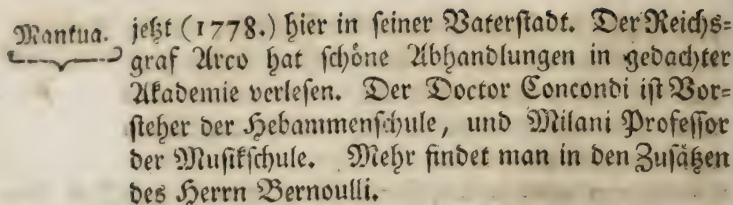 Mantua.
jetzt (1778.) hier in ſeiner Vaterſtadt. Der Reichs=
graf Arco hat ſchöne Abhandlungen in gedachter
Akademie verleſen. Der Doctor Concondi iſt Vor=
ſteher der Hebammenſchule, und Milani Profeſſor
der Muſikſchule. Mehr findet man in den Zuſätzen
des Herrn Bernoulli.